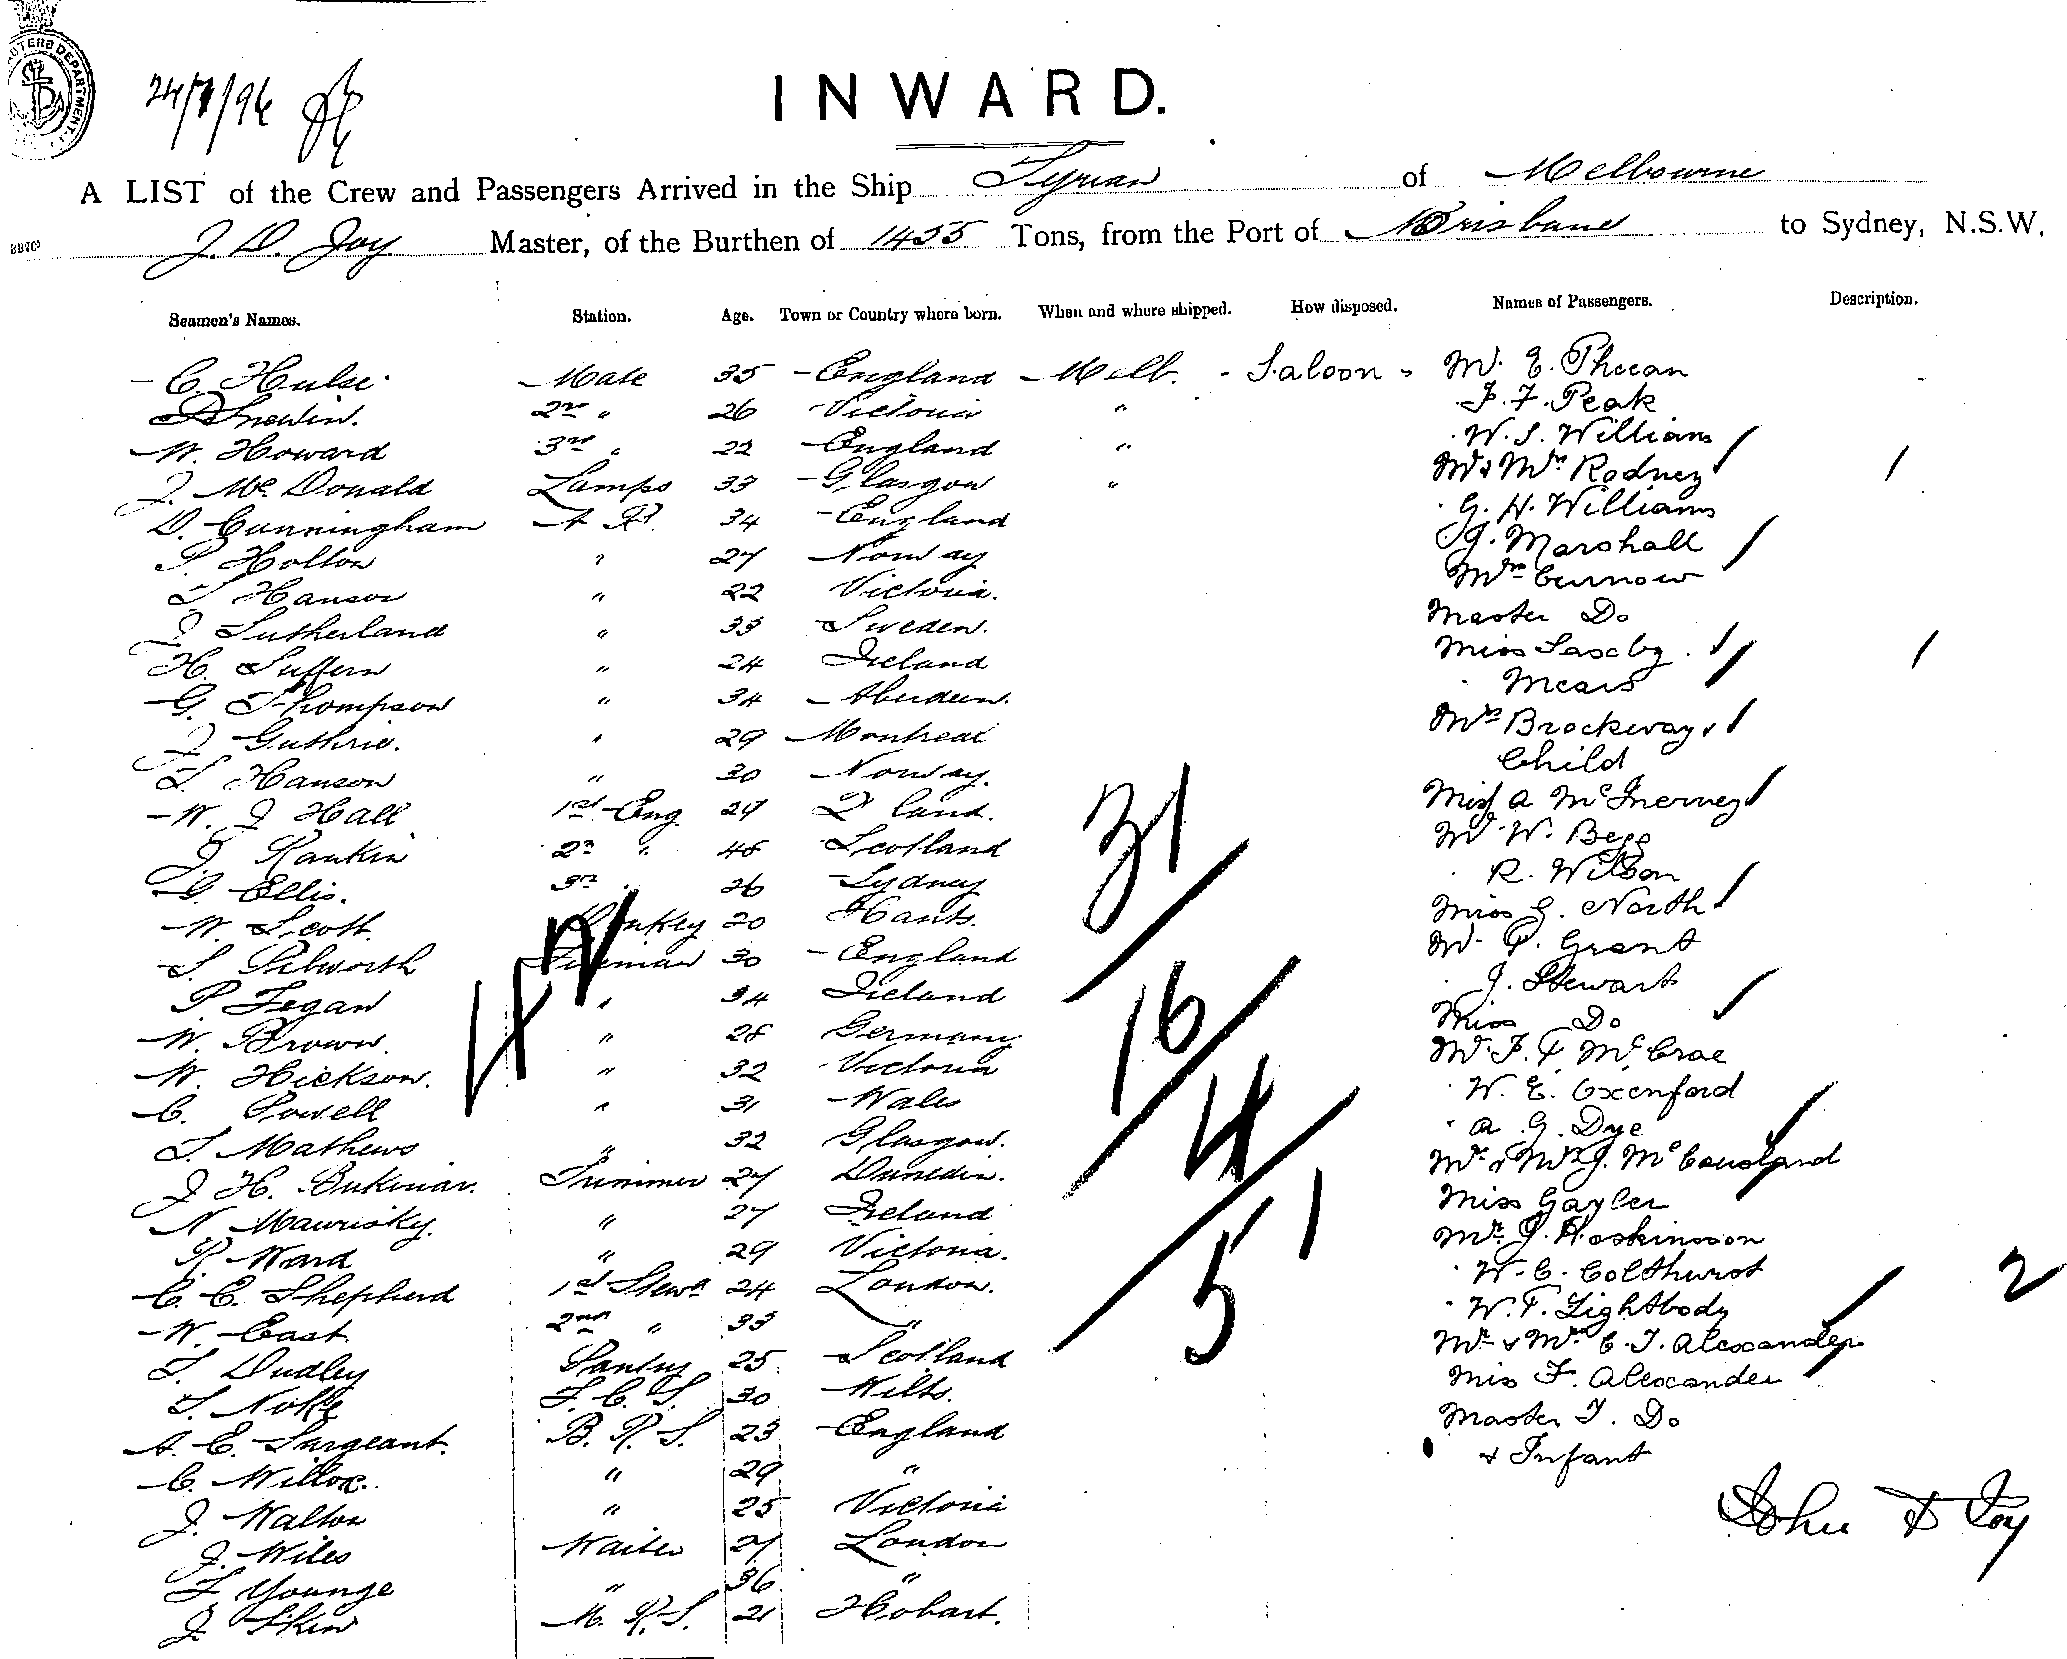 24/7/96
INWARD.
A LIST of the Crew and Passengers Arrived in the Ship Tyrian of Melbourne
J. D. Joy Master, of the Burthen of 1455 Tons, from the Port of Brisbane to Sydney, N.S.W.
Seamen's Names. Station. Age. Town or Country where born. When and where shipped. How disposed. Names of Passengers. Description.
C. Hulse Mate 35 England Melb. Saloon Mr. E. Pheean
2nd " 26 Victoria " F. F. Peak
W. Howard 3rd " 22 England " W. S. Williams
J. McDonald Lamps 33 Glasgow " Mr & Mrs Rodney
D. Cunningham A B 34 England G. H. Williams
P. Holton " 27 Norway G. Marshall
T Hanson " 22 Victoria. Mrs Curnow
J Sutherland " 33 Sweden. Master Do
H. Suffern " 24 Ireland Miss
G. Thompson " 34 Aberdeen. Mears
J Guthrie. " 29 Montreal Mrs Brockway &
Child
T. Hanson " 30 Norway.
W. J Hall 1st Eng. 29 Q land. Miss A McInerney
J Rankin 2nd " 48 Scotland Mr W. Begg
G. Ellis. 3rd " 26 Sydney R. Wilson
W. Scott. Donkey 20 Hants. Miss E. North
S. Pilworth Fireman 30 England Mr P. Grant
P. Fegan " 34 Ireland J. Stewart
W. Brown. " 28 Germany Miss Do
W. Hickson. " 32 Victoria Mr. F. F. McCrae
C. Powell " 31 Wales W. E. Oxenford
T. Mathews " 32 Glasgow. A. G. Dye
J H. Trimmer 27 Dunedin. Mr & Mrs J. McCausland
N " 27 Ireland Miss Gayler
R. Ward " 29 Victoria. Mr. J. Hoskinson
C. E. Shepherd 1st Stewd 24 London. W. C. Colthurst
W. East 2nd " 33 " W. F. Lightbody
T. Dudley Pantry 25 Scotland Mr & Mrs C. J. Alexander
T. F. C. S. 30 Wilts. Miss F. Alexander
A. E. Sargeant. B. R. S. 23 England Master J. Do
C. Willox. " 29 " & Infant
J. Walton " 25 Victoria
J. Wiles Waiter 27 London
T Younge " 36 "
J. Skew M. R. S. 21 Hobart.
42
31
16
4
51
2
John D Joy